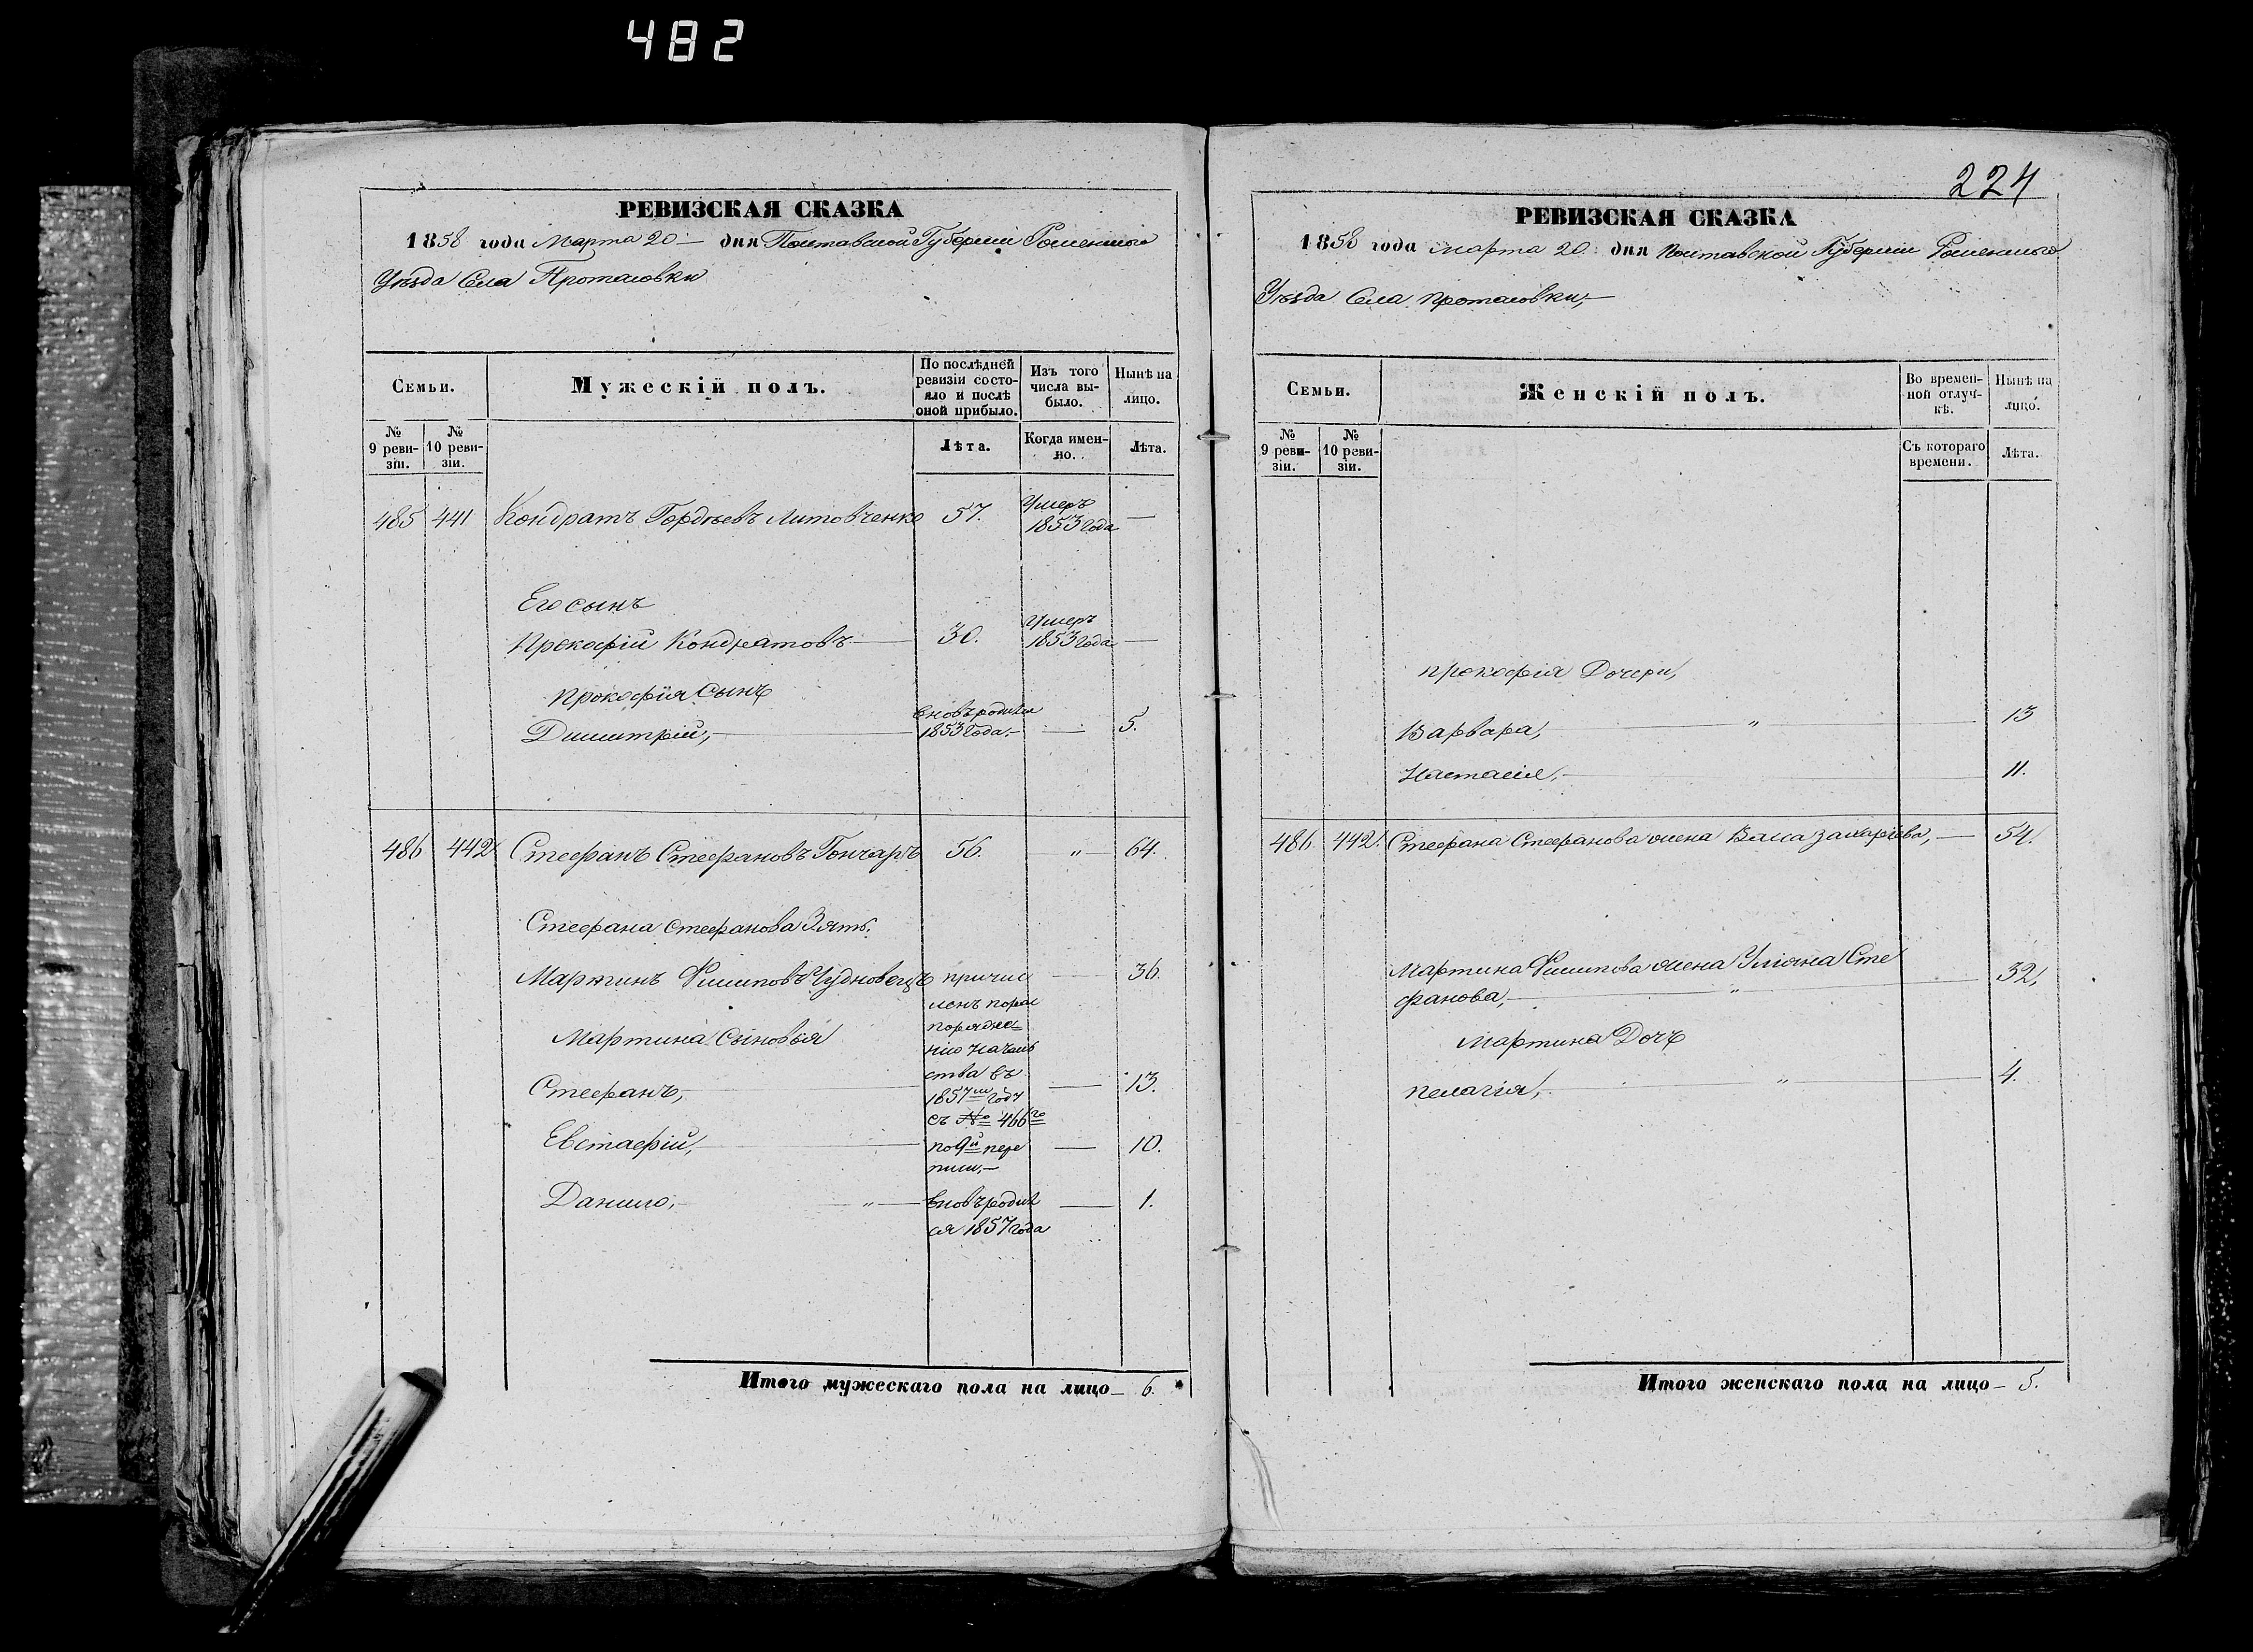 482
РЕВИЗСКАЯ СКАЗКА
1858 года Марта 20 дня Полтавской Губерніи Роменского
Уѣзда Села Протасовки
Семьи.
Мужескій полъ.
По послѣдней ревизіи состояло и послѣ оной прибыло.
Изъ того числа выбыло.
Нынѣ на лицо.
№ 9 ревизіи.
№ 10 ревизіи.
Лѣта.
Когда именно.
Лѣта.
485 441 Кондратъ Гордѣевъ Литовченко 57. Умеръ 1853 года —
Его сынъ
Прокофій Кондратовъ 30. Умеръ 1853 года —
Прокофія Сынъ
Димитрій, вновь родился 1853 года. — 5.
486 442 Стефанъ Стефановъ Гончаръ 56. — „ — 64.
Стефана Стефанова Зять.
Мартинъ Филиповъ Чудновецъ причис — 36.
ленъ
Мартина Сыновья
ства въ
Стефанъ, 1857м году — 13.
съ № 466го
Евстафій, по 9й пере — 10.
писи, —
Данило, „ вновь родил — 1.
ся 1857 года
Итого мужескаго пола на лицо — 6.
224
РЕВИЗСКАЯ СКАЗКА
1858 года марта 20. дня Полтавской Губерніи Роменского
Уѣзда Села Протасовки, —
Семьи.
Женскій полъ.
Во временной отлучкѣ.
Нынѣ на лицо.
№ 9 ревизіи.
№ 10 ревизіи.
Съ котораго времени.
Лѣта.
прокофія Дочери,
Варвара, „ 13
Настасія, 11.
486. 442. Стефана Стефанова жена Васса захаріева, — 54.
Мартина Филипова жена Уліяна Сте
фанова, „ 32,
Мартина Дочь
пелагія, „ 4.
Итого женскаго пола на лицо — 5.